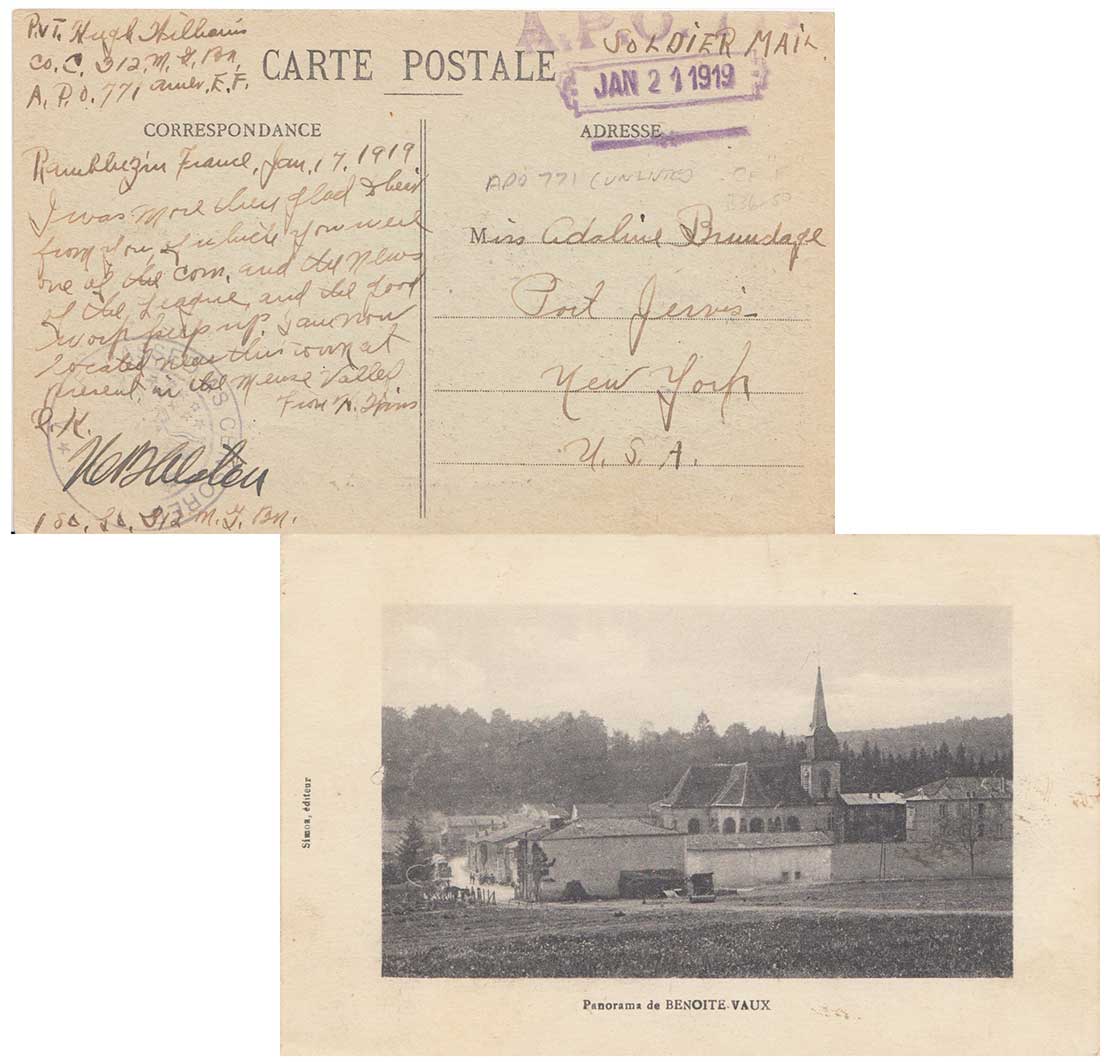 Pvt. Hugh Williams
Co. C. 312. M. G. Bn.
A. P. O. 771 Amer. E. F.
CARTE POSTALE
A.P.O.
SOLDIER MAIL
JAN 21 1919
CORRESPONDANCE
ADRESSE
France, Jan. 17, 1919
I was more then glad to heir
from you, of which you were
one of the Com. and the News
of the League, and the good
work keep up. I am now
located near this town at
present in the Meuse Valley
From H.
O.K.
1st. Lt. 312 M. G. Bn.
APO 771 (UNLISTED)
Miss Adaline Brundage
Port Jervis
New York
U. S. A.
Simon, éditeur
Panorama de BENOITE-VAUX